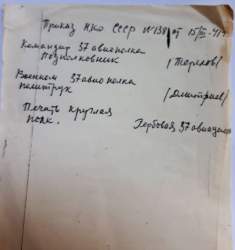 Приказ НКО СССР №138 от 15/III-41г
Командир 37 авиополка
Подполковник /Теряков/
Военком 37 авиополка
политрук /Дмитриев/
Печать круглая Гербовая 37 авиа